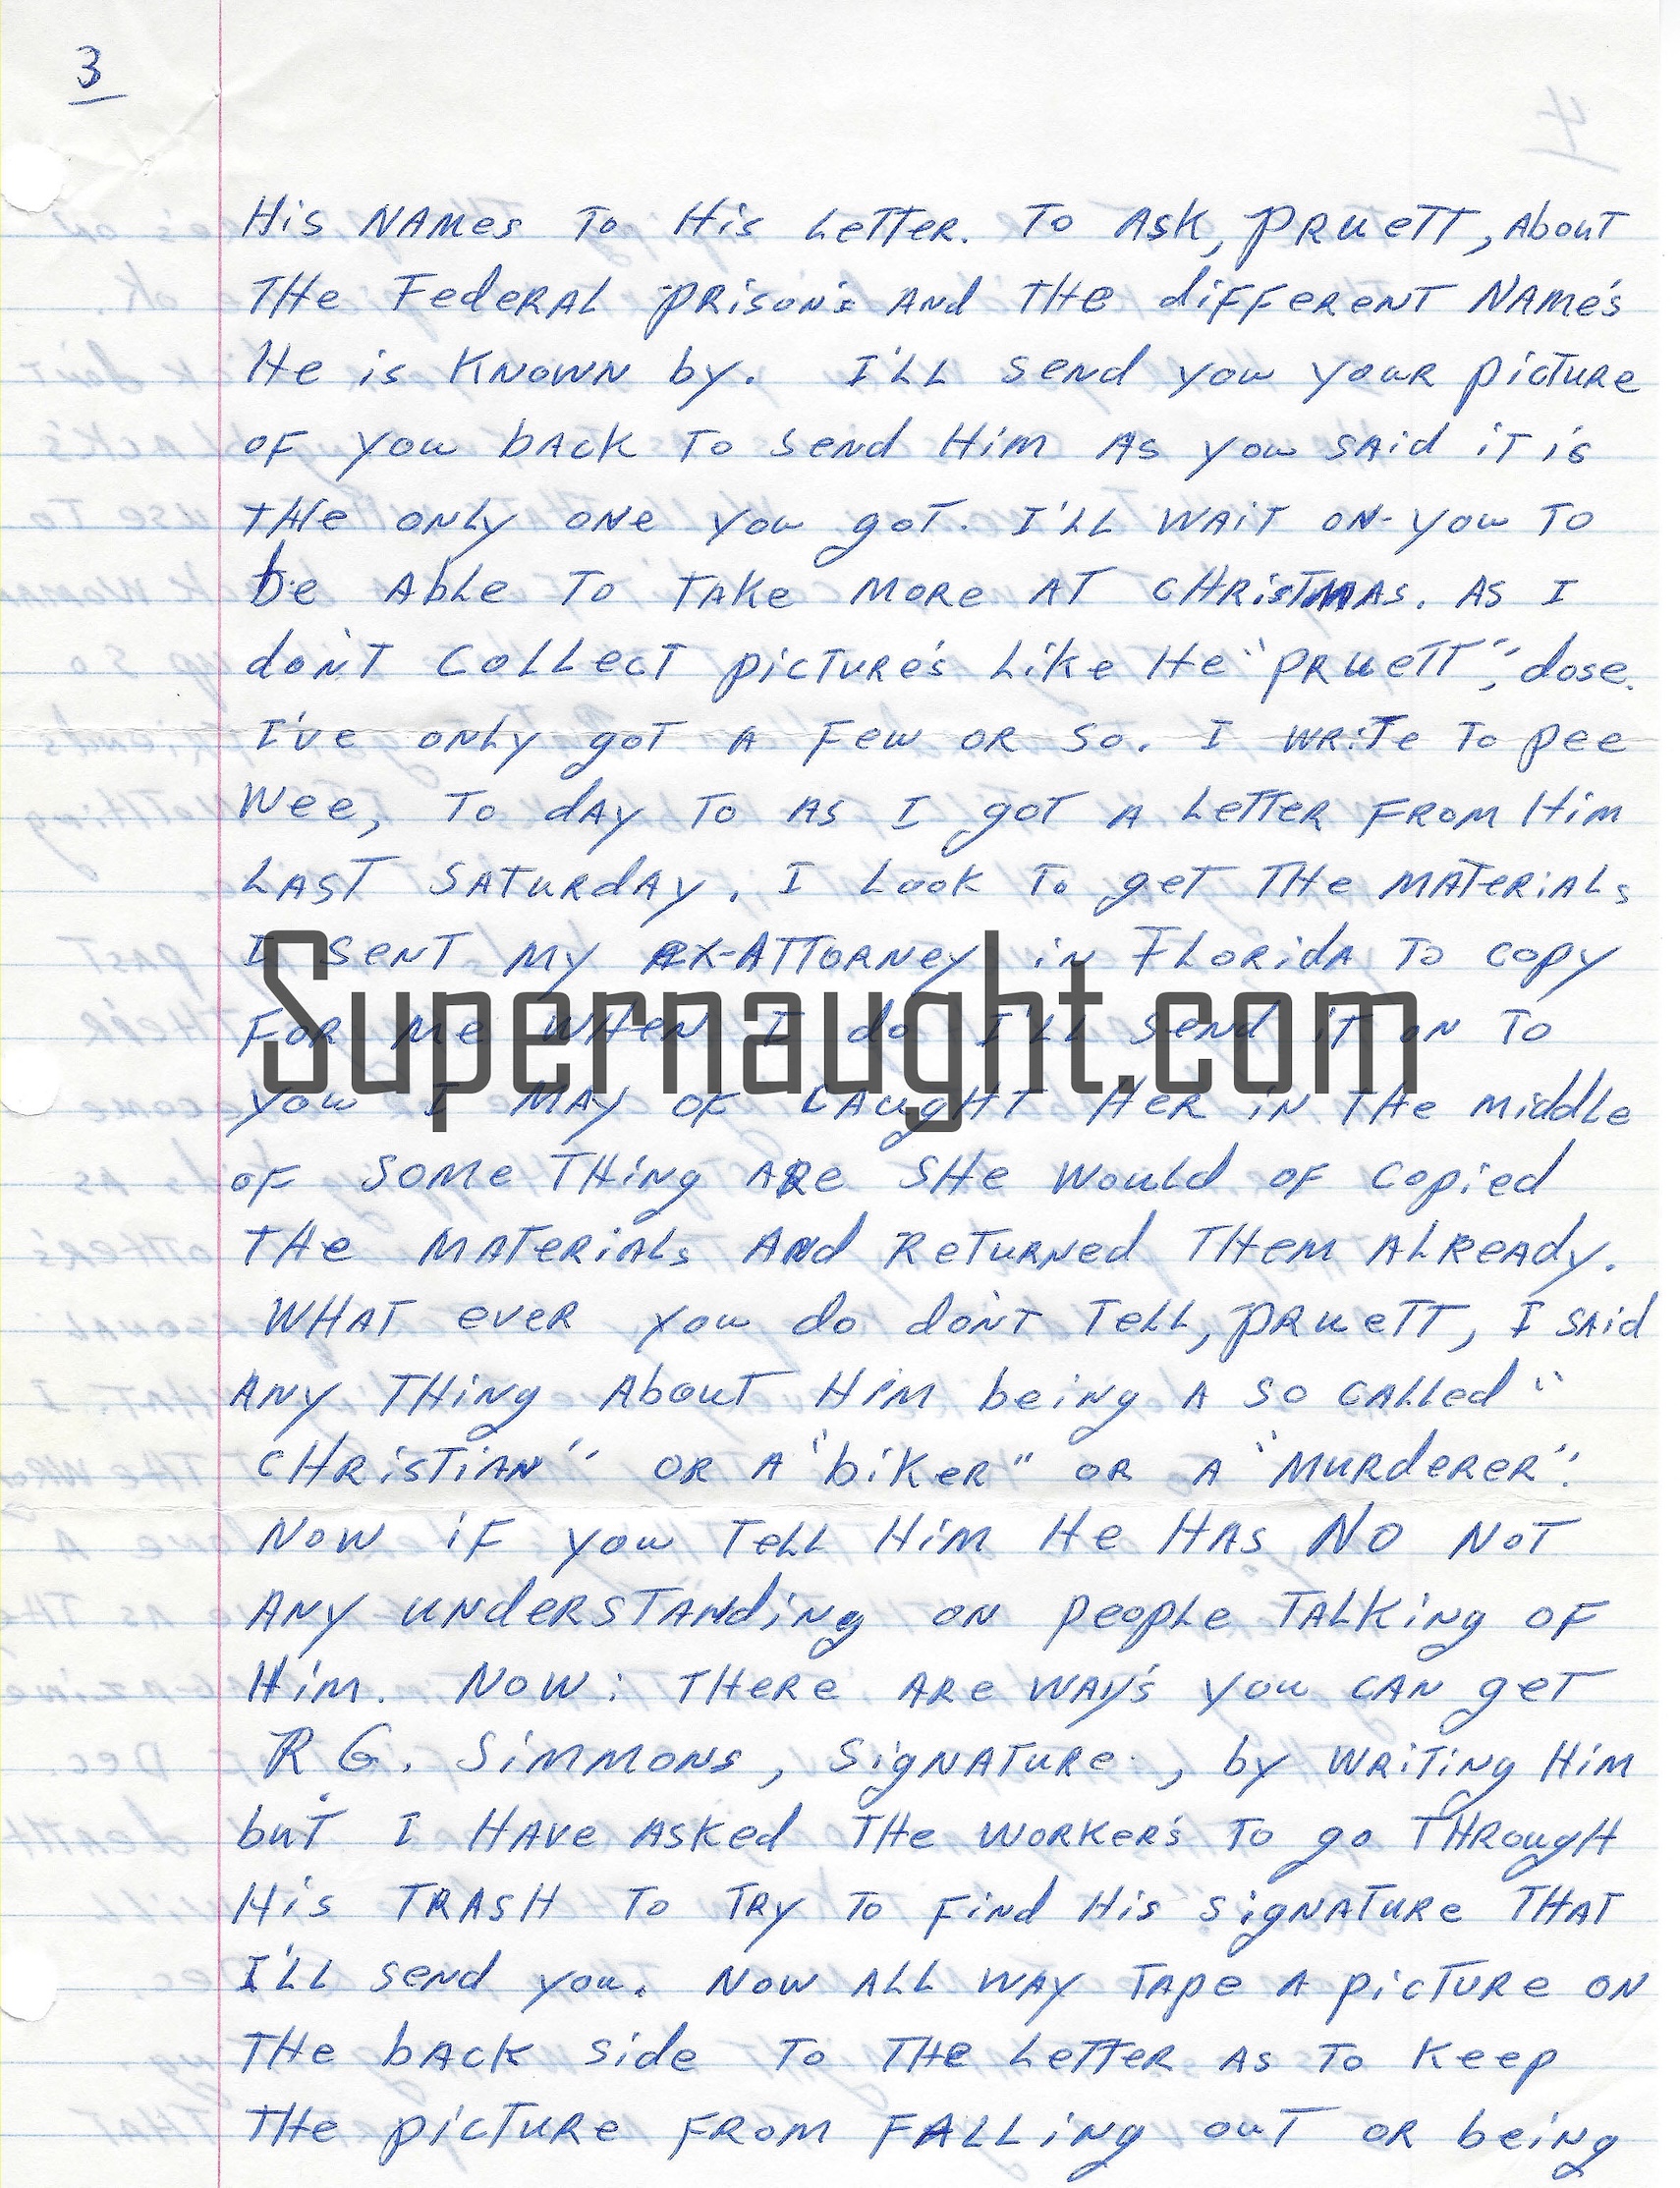 3
His NAMes To His Letter. To Ask, PRuett, About
THe Federal prison's And THe different NAMe's
He is KNowN by. I'll send you your picture
of you back To send Him As you said it is
tHe only one you got. I'll wait on-you To
be Able To Take More At cHRistMAs. As I
don't collect picture's Like He "PRuett", dose.
I've only got A Few or so. I write To pee
Wee, To day To As I got A Letter From Him
LAst SAturdAy. I Look To get THe MAteriALs
I sent My ex-Attorney in Florida To copy
For Me WHen I do I'll send it on To
you I MAy of cAught Her in THe middle
of some THing ARe SHe would of copied
THe MAteriALs And Returned THem ALReady.
WHAt ever you do don't Tell, PRuett, I sAid
Any THing About Him being A so cALLed "
cHRistiAN" or A "biker" or A "Murderer".
Now if you Tell Him He HAs No Not
Any understAnding on people TALking of
Him. Now: THere Are wAy's you cAn get
R G. Simmons, signature, by writing Him
but I HAve Asked THe worker's To go THRough
His TRAsH To TRy To Find His signature THAt
I'll send you. Now ALL wAy TApe A picture on
THe bAck side To THe Letter As To keep
THe picture From FALLing out or being
Supernaught.com